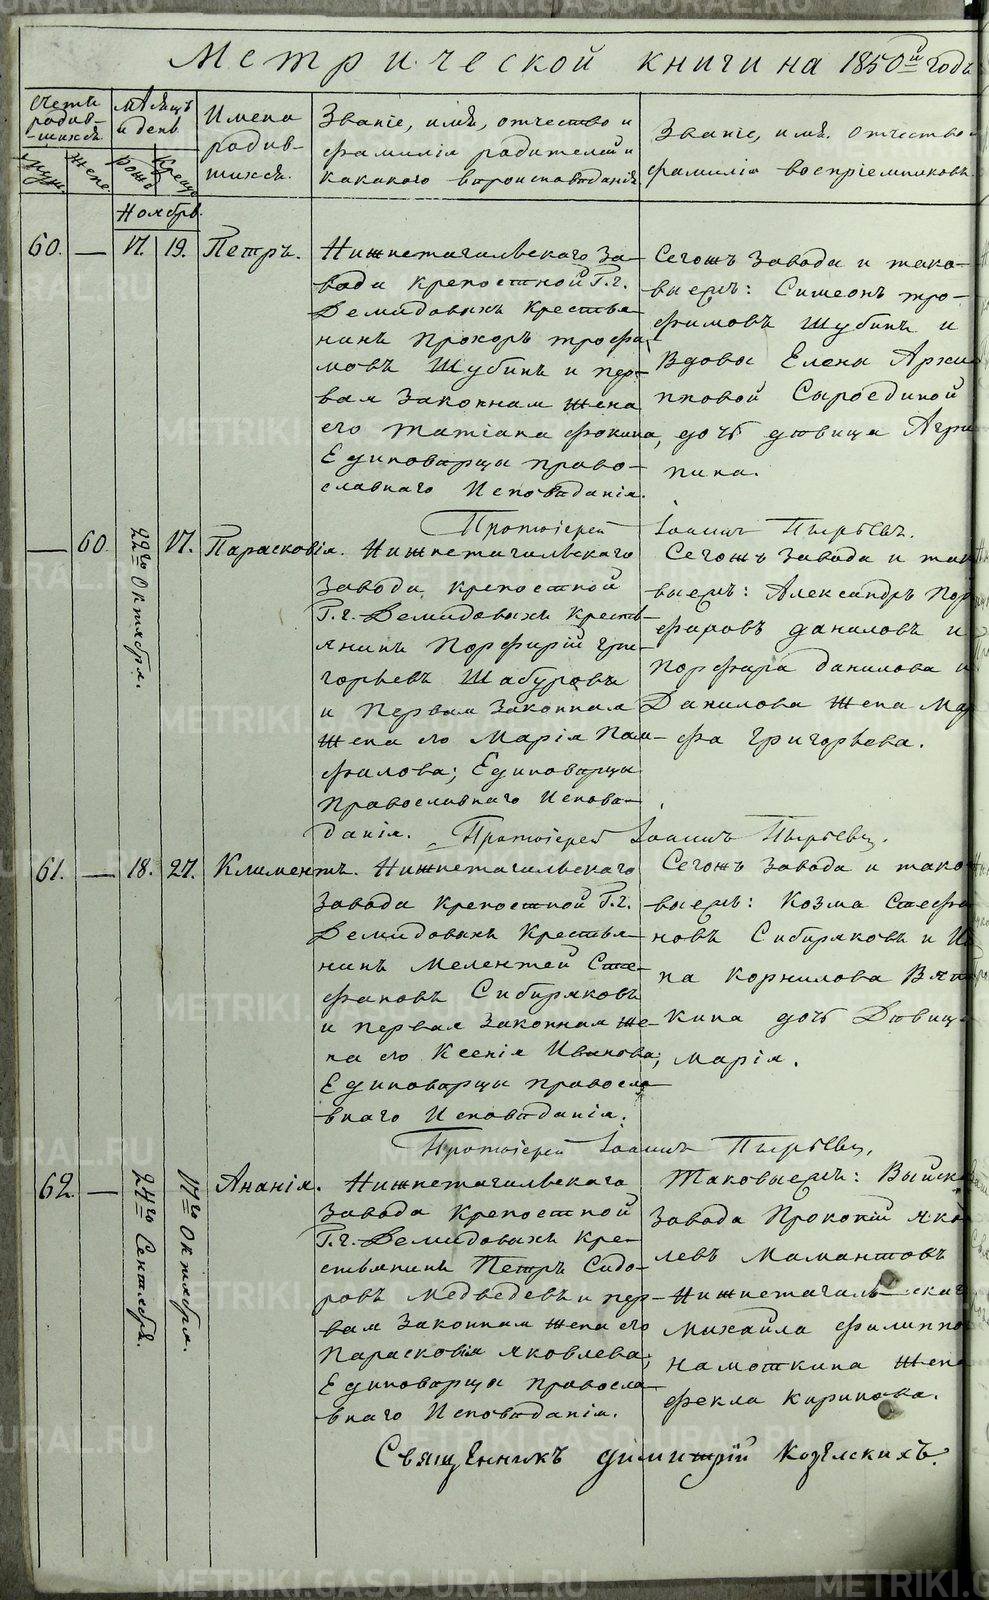 Метрической книги на 1850й годъ
Счетъ родив-шихся
Муж.
Жен.
Мѣсяцъ и день
Рожд.
Крещ.
Имена родив-шихся.
Званіе, имя, отчество и
фамилія родителей и
какакого вѣроисповѣданія
Званіе, имя, отчество
фамилія воспріемниковъ
Ноябрь.
60. — 17. 19. Петръ.
Нижнетагильскаго За-
вода крепостной Г.г.
Демидовыхъ Крестья-
нинъ Прохоръ трофи
мовъ Шубинъ и пер-
вая Законная Жена
его татіана фокина,
Единоварцы право-
славнаго Исповѣданія.
Сегожъ Завода и тако-
выежъ: Симеонъ тро-
фимовъ Шубинъ и
Вдовы Елены Архи
пповой Сыроединой
дочь дѣвица Агри
пина.
Протоіерей Іоаннъ Пырьевъ.
— 60 22го Октября. 17. Парасковія.
Нижнетагильскаго
Завода, крепостной
Г.г. Демидовыхъ Кресть-
янинъ Порфирій гри-
горьевъ Шабуровъ
и Первая Законная
Жена его Марія Пам-
филова; Единоварцы
Православнаго Испова-
данія.
Сегожъ Завода и так
выежъ: Александръ Пор
фировъ даниловъ и
Порфира данилова и
Данилова Жена Мар
фа Григорьева.
Протоіерей Іоаннъ Пырьевъ.
61. — 18. 27. Климентъ.
Нижнетагильскаго
Завода крепостной Г.г.
Демидовыхъ Крестья-
нинъ Мелентей Сте-
фановъ Сибиряковъ
и первая Законная же-
на его Ксенія Иванова;
Единоварцы правосла-
внаго Исповѣданія.
Сегожъ Завода и тако
выежъ: Козма Стефа
новъ Сибиряковъ и
на Корнилова Вят
кина дочь Дѣвиц
Марія.
Протоіерей Іоаннъ Пырьевъ.
62. — 24го Сентября. 17го Октября. Ананія.
Нижнетагильскаго
Завода Крепостной
Г.г. Демидовыхъ Кре-
стьянинъ Петръ Сидо-
ровъ Медведевъ и пер-
вая Законная жена его
Парасковія яковлева;
Единоварцы правосла-
внаго Исповѣданія.
Таковыежъ: Выйск
Завода Прокопій яко
левъ Мамантовъ
Нижнетагильскаг
Михайла филиппо
на моткина жена
фекла Карпова.
Священникъ димитрій Козельскихъ.
METRIKI.GASO-URAL.RU